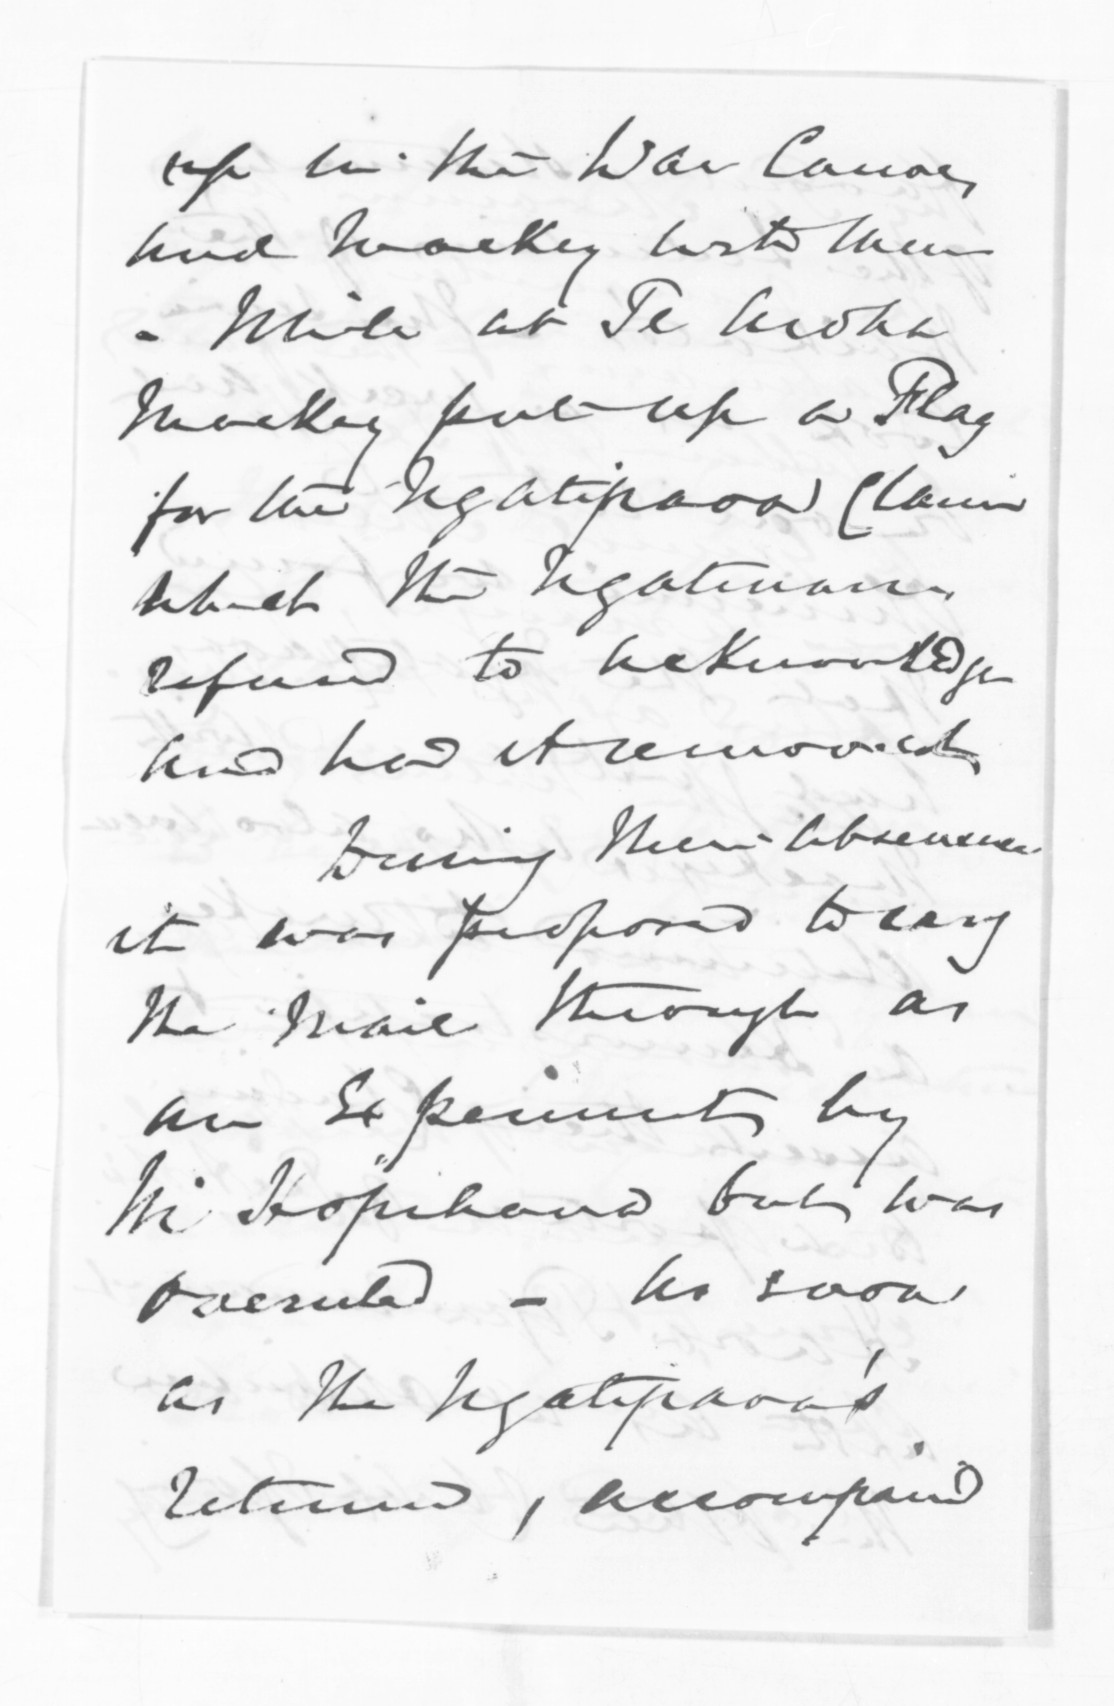 up in the War Canoe,
and Mackey with them
- While at Te Aroha
Mackey put up a Flag
for the Ngatipaoa Claim
which the Ngatimaru
refused to acknowledge
and had it removed,
During their absence
it was proposed to carry
the Mail through as
an Experiment, by
Wi Hopihana but was
overruled - As soon
as the Ngatipaoa's
returned, accompanied